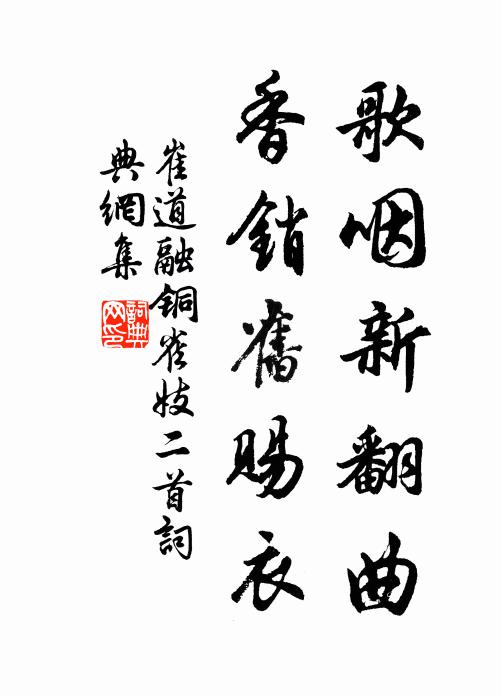 歌咽新翻曲
香銷舊賜衣
崔道融銅雀妓二首詞
典網集
詞典
网印